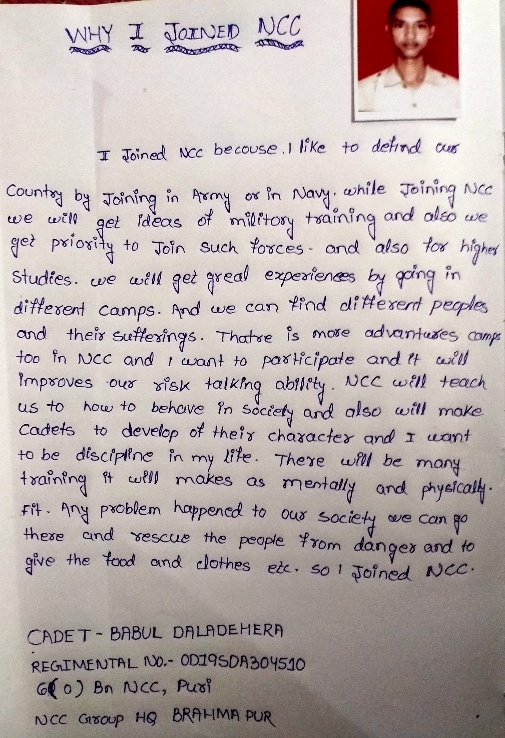 WHY I JOINED NCC
I Joined NCC becouse. I like to defind our
Country by Joining in Army or in Navy. while Joining NCC
we will get ideas of military training and also we
get priority to Join such forces. and also for higher
studies. we will get greal experiences by going in
different camps. And we can find different peoples
and their sufferings. Thatre is more advantures camps
too in NCC and I want to participate and it will
improves our risk talking ability. NCC will teach
us to how to behave in society and also will make
cadets to develop of their character and I want
to be discipline in my life. There will be many
training it will makes as mentally and physically.
Fit. Any problem happened to our society we can go
there and rescue the people from danger and to
give the food and clothes etc. so I Joined NCC.
CADET - BABUL DALADEHERA
REGIMENTAL NO.- OD19SDA304510
6(0) Bn NCC, Puri
NCC Group HQ BRAHMAPUR